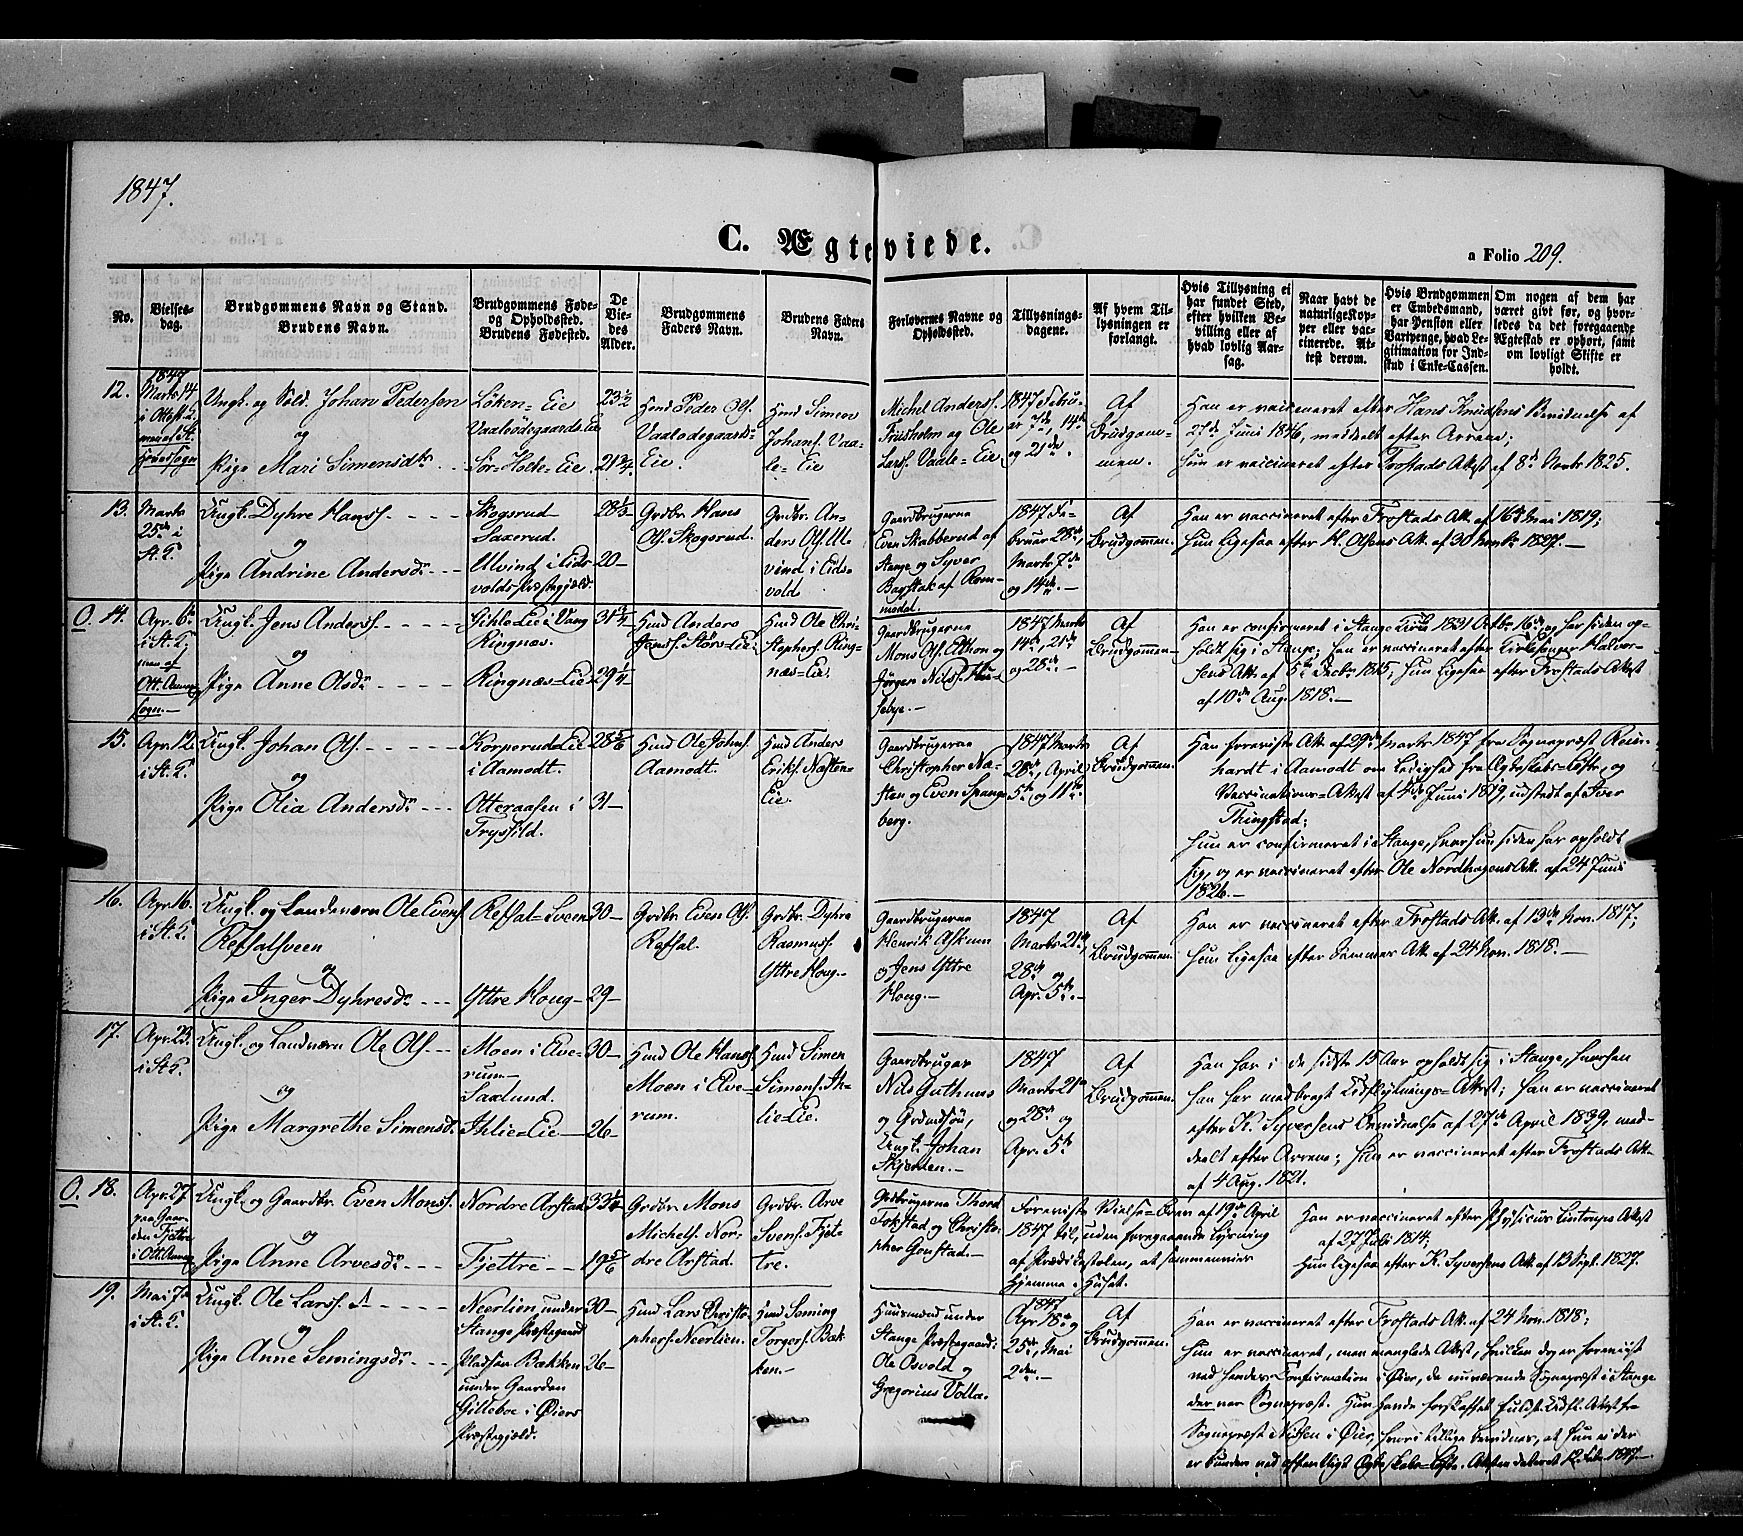 1847.
C. Ægteviede.
a Folio 209.
No.
Vielses-
dag.
Brudgommens Navn og Stand.
Brudens Navn.
Brudgommens Føde-
og Opholdssted.
Brudens Fødested.
De
Vie-
des
Alder.
Brudgommens
Faders Navn.
Brudens Faders
Navn.
Forlovernes Navne og
Opholdssted.
Tillysnings-
dagene.
Af hvem Til-
lysningen er
forlangt.
Hvis Tillysning ei
har fundet Sted,
efter hvilken Be-
villing eller af
hvad lovlig Aar-
sag.
Naar havt de
naturlige Kop-
per eller vac-
cinerede. At-
test derom.
Hvis Brudgommen
er Embedsmand,
har Pension eller
Vartpenge, hvad Le-
gitimation for Ind-
skud i Enke-Cassen.
Om nogen af dem har
været givt før, og hvor-
ledes da det foregaaende
Ægteskab er ophørt, samt
om lovligt Skifte er
holdt.
12.
1847
Marts 14
Ungk. og Sold. Johan Pedersen
og
Pige Mari Simensdr.
Løken-Eie
Vaalødegaards-Eie
Sør-Holte-Eie.
23 1/2
21 3/4
Huusd Peder Ols.
Vaalødegaards-
Eie.
Huusd Simen
Johans. Vaa-
le-Eie
Michel Anders.
Friisholm og Ole
Lars. Vaale-Eie
1847 Febru-
ar 7de, 14de
og 21de
Af
Brudgom-
men.
Han er vaccineret efter Hans Knudsens Bevidnelse af
27de Juni 1846, meddelt efter Arrene;
Hun er vaccineret efter Frostads Attest af 8de Novbr 1825.
13.
Marts
25de i
St. K.
Ungk. Dyhre Hans.
og
Pige Andrine Andersdr.
Skogsrud
Saxerud.
Ulvind i Eids-
volds Præstegjæld.
28 1/3
20
Grdbr. Hans
Ols. Skogsrud.
Grdbr. An-
ders Ols. Ul-
vind i Eids-
vold
Gaardbrugerne
Even Skabberud af
Stange og Syver
Bagstak af Rom-
medal.
1847 Fe-
bruar 28de,
Marts 7de
og 14de.
Af
Brudgommen.
Han er vaccineret efter Frostads Att. af 16de Mai 1819;
Hun ligesaa efter H. Olsens Att. af 30 Novbr 1827.
O. 14.
Apr. 6te
i St. K.
men af
Ott. Annex
sogn.
Ungk. Jens Anders.
og
Pige Anne Olsdr.
Gihle-Eie i Vang
Ringnæs.
Ringnæs-Eie
31 3/4
29 1/4
Huusd Anders
Jens. Størs-Eie.
Huusd Ole Chri-
stophers. Ring-
næs-Eie.
Gaardbrugerne
Mons Ols. Alhon og
Jørgen Nils. Hu-
sebye.
1847 Marts
14de, 21de
og 28de.
Af
Brudgommen.
Han er confirmeret i Stange Kirke 1831 Octbr 16de og har siden op-
holdt sig i Stange; han er vaccineret efter Kirkesanger Halvor-
sens Att. af 5te Decbr 1815; Hun ligesaa efter Frostads Attest
af 10de Aug. 1818.
15.
Apr. 12.
i St. K.
Ungk. Johan Ols.
og
Pige Olia Andersdr.
Korperud-Eie
i Aamodt.
Otteraasen i
Tryssild.
28 5/6
31
Huusd Ole Johns.
Aamodt.
Huusd Anders
Eriks. Næsten-
Eie.
Gaardbrugerne
Christopher Næ-
sten og Even Spang-
berg.
1847 Marts
28de, April
5te og 11te.
Af
Brudgommen.
Han foreviste Att. af 29de Marts 1847 fra Sognepræst Rein-
hardt i Aamodt om Ledighed fra Ægteskabs-Løfte, og
Vaccinations-Attest af 4de Juni 1819, udstedt af Iver
Thingstad;
Hun er confirmeret i Stange, hvor hun siden har opholdt
sig, og er vaccineret efter Ole Nordhagens Att. af 24 Juni
1826.
16.
Apr. 16.
i St. K.
Ungk. og Landværn Ole Evens.
Refsalsveen
og
Pige Inger Dyhresdr.
Refsal-Sveen
Yttre Houg
30
29
Grdbr. Even Ols.
Refsal.
Grdbr. Dyhre
Rasmuss.
Yttre Houg.
Gaardbrugerne
Henrik Askum
og Jens Yttre
Houg.
1847
Marts 21de,
28de og
Apr. 5te.
Af
Brudgommen.
Han er vaccineret efter Frostads Att. af 19de Nov. 1817;
Hun ligesaa efter Sammes Att. af 24 Nov. 1818.
17.
Apr. 23.
i St. K.
Ungk. og Landværn Ole Ols.
og
Pige Margrethe Simensdr.
Moen i Elve-
rum
Saalund.
Ihlie-Eie
30
26
Huusd Ole Hans.
Moen i Elve-
rum.
Huusd Simen
Simens. Ih-
lie-Eie.
Gaardbruger
Nils Guthuus
og Grdmdsøn,
Ungk. Johan
Skjerden.
1847
Marts 21de
28de og
Apr. 5te
Af
Brudgommen.
Han har i de sidste 15 Aar opholdt sig i Stange, hvorhen
han har medbragt Udflytnings-Attest; han er vaccineret
efter K. Syversens Bevidnelse af 27de April 1839, med-
deelt efter Arrene; Hun er vaccineret efter Frostads Att.
af 4 Aug. 1821.
O. 18.
Apr. 27
paa Gaar-
den Fjetre
i Ott. Annex
Ungk. og Gaardbr. Even Mons.
og
Pige Anne Arvesdr.
Nordre Arstad
Fjettre
33 1/4
19 5/6
Grdbr. Mons
Michels. Nor-
dre Arstad.
Grdbr. Arve
Svens. Fjet-
tre.
Grdbrugerne Thord
Tokstad og Christo-
pher Gonstad.
Foreviste Vielse-Brev af 19de April
1847 til, uden foregaaende Lysning
af Prædikestolen, at sammenvies
hjemme i Huset.
Han er vaccineret efter Physicus Lintrups Attest
af 27 Juli 1814;
Hun ligesaa efter K. Syversens Att. af 13 Sept. 1827.
19.
Mai 7de
i St. K.
Ungk. Ole Lars.
og
Pige Anne Semingsdr.
Neerlien under
Stange Præstegaard
Pladsen Bækken
under Gaarden
Gilleboe i Øiers
Præstegjæld.
30
26
Huusd Lars Christo-
phers. Neerlien.
Huusd Seming
Torgers. Bæk-
ken.
Huusmænd under
Stange Præstegaard:
Ole Osvold og
Gregorius Volla.
1847
Apr. 18de og
25de, Mai
2den.
Af
Brudgommen.
Han er vaccineret efter Frostads Att. af 24 Nov. 1818;
Hun er vaccineret, men manglede Attest, hvilken dog er forevist
ved hendes Confirmation i Øier, da nuværende Sognepræst i Stange
der var Sognepræst. Hun havde forskaffet Attest fra
Sognepræst Nilssen i Øier, hvori tillige bevidnes, at hun ei der
er bunden ved offentligt Ægteskabs-Løfte. Attesten dateret 12 Febr. 1847.